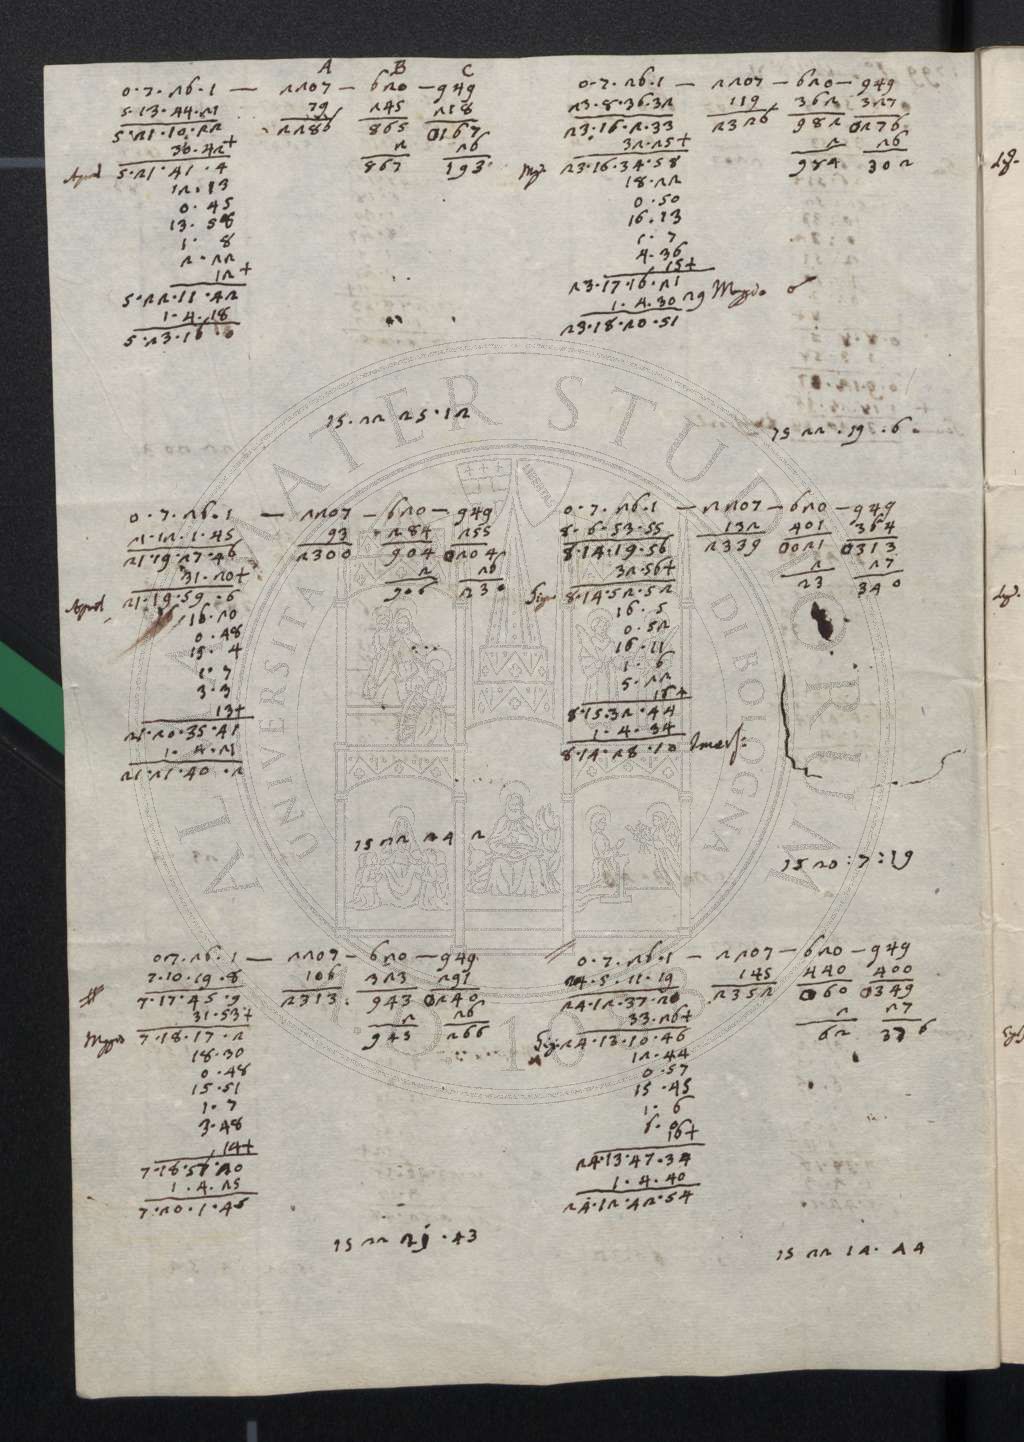 A B C
0.7.26.1 — 2207 — 620 — 949
5.13.44.21 79 245 218
5.21.10.22 2286 865 0167
30.42+ 2 26
Aprel 5.21.41.4 867 193
12.13
0.45
13.58
1.8
2.22
12+
5.22.11.42
1.4.18
5.23.16.0
15.22 25.12
0.7.26.1 — 2207 — 620 — 949
23.8.36.32 119 362 327
23.16.2.33 2326 982 0276
32.25+ 2 26
23.16.34.58 984 302
18.22
0.50
16.13
1.7
4.36
15+
23.17.16.21
1.4.30
23.18.20.51
15 22.19.6
0.7.26.1 — 2207 — 620 — 949
21.12.1.45 93 284 255
21.19.27.46 2300 904 0204
31.20+ 2 26
Aprel 21.19.59.6 906 230
16.20
0.48
15.4
1.7
3.3
13+
21.20.35.41
1.4.21
21.21.40.2
15 22 24 2
0.7.26.1 — 2207 — 620 — 949
8.6.53.55 132 401 364
8.14.19.56 2339 0021 0313
32.56+ 2 27
8.14.52.52 23 340
16.5
0.52
16.11
1.6
5.22
16+
8.15.32.44
1.4.34
8.14.28.10
15 20:7:19
0.7.26.1 — 2207 — 620 — 949
7.10.19.8 106 323 291
7.17.45.9 2313 943 0240
31.53+ 2 26
7.18.17.2 945 266
18.30
0.48
15.51
1.7
3.48
14+
7.18.57.20
1.4.25
7.20.1.45
15 22 21.43
0.7.26.1 — 2207 — 620 — 949
24.5.11.19 145 440 400
24.12.37.20 2352 060 0349
33.26+ 2 27
24.13.10.46 62 376
12.44
0.57
15.45
1.6
6.0
16+
24.13.47.34
1.4.40
24.12.42.54
15 22 14.44
ALMA MATER STUDIORUM
UNIVERSITÀ DI BOLOGNA